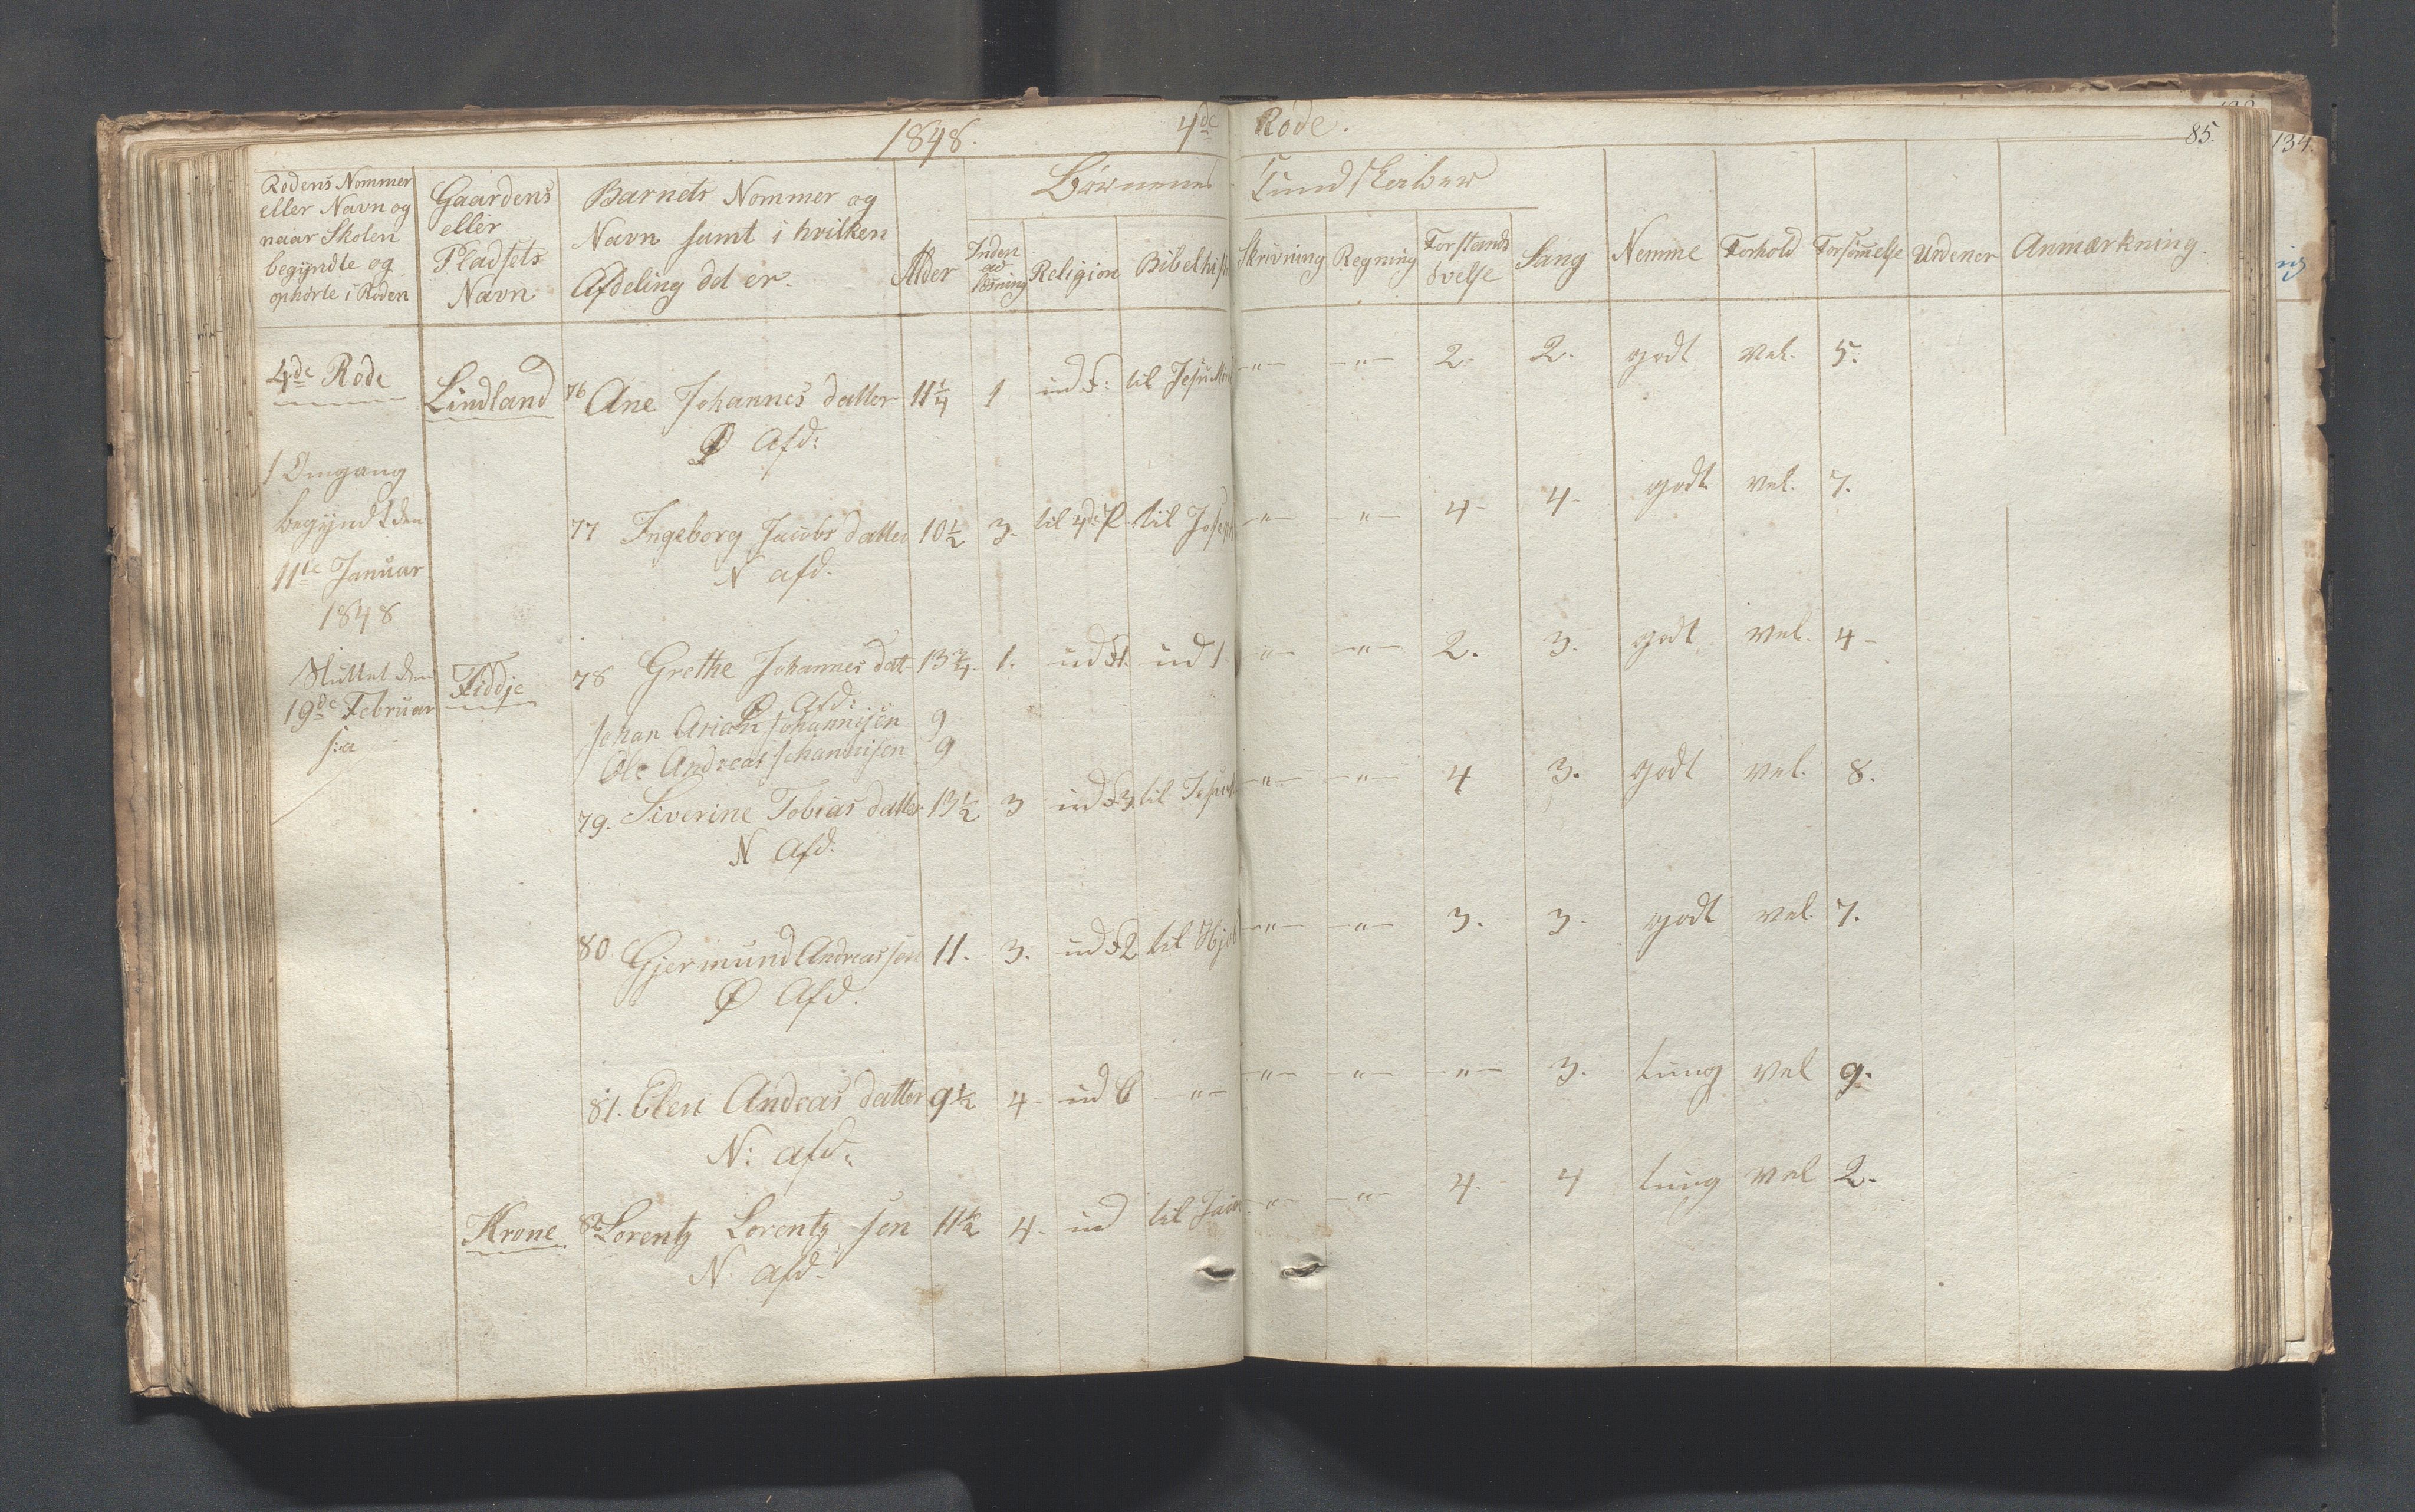 1848. 4de Rode. 85. 134.
Rodens Nommer eller Navn og naar Skolen begyndte og ophørte i Roden
Gaardens eller Pladsets Navn
Barnets Nommer og Navn samt i hvilken Afdeling det er.
Alder
Børnenes Kundskaber
Inden ad læsning
Religion
Bibelhist
Skrivning
Regning
Forstands øvelse
Sang
Nemme
Forhold
Forsømmelse
Anmærkning.
4de Rode
Lindland 76 Ane Johannes datter 11 1/4 1 ud til Jesu -"- -"- 2- 2. godt vel. 5.
Ø Afd:
1 Omgang
begyndt den
11te Januar
1848
77 Ingeborg Jacobs datter 10 1/2 3- til 4de P. til Joseph -"- -"- 4- 4- godt vel. 7.
N afd.
Sluttet den
19de Februar
s:a
Fiddje 78 Grethe Johannes dat- 13 3/4 1. ud ud 1. -"- -"- 2. 3. godt vel. 4-
Ø Afd:
Johan Arian Johannisen 9
Ole Andreas Johannisen 9
79. Siverine Tobias datter 13 1/2 3 ud til Jesu -"- -"- 4 3. godt vel. 8.
N Afd.
80 Gjermund Andreassen 11. 3. ud til -"- -"- 3. 3- godt vel. 7.
Ø Afd.
81. Elen Andreas datter 9 1/2 4- ud -"- -"- -"- -"- 3. tung vel 9.
N: afd:
Krone 82 Lorentz Lorentz sen 11 1/2 4- ud til -"- -"- 4.- 4 tung vel 2.
N. afd.